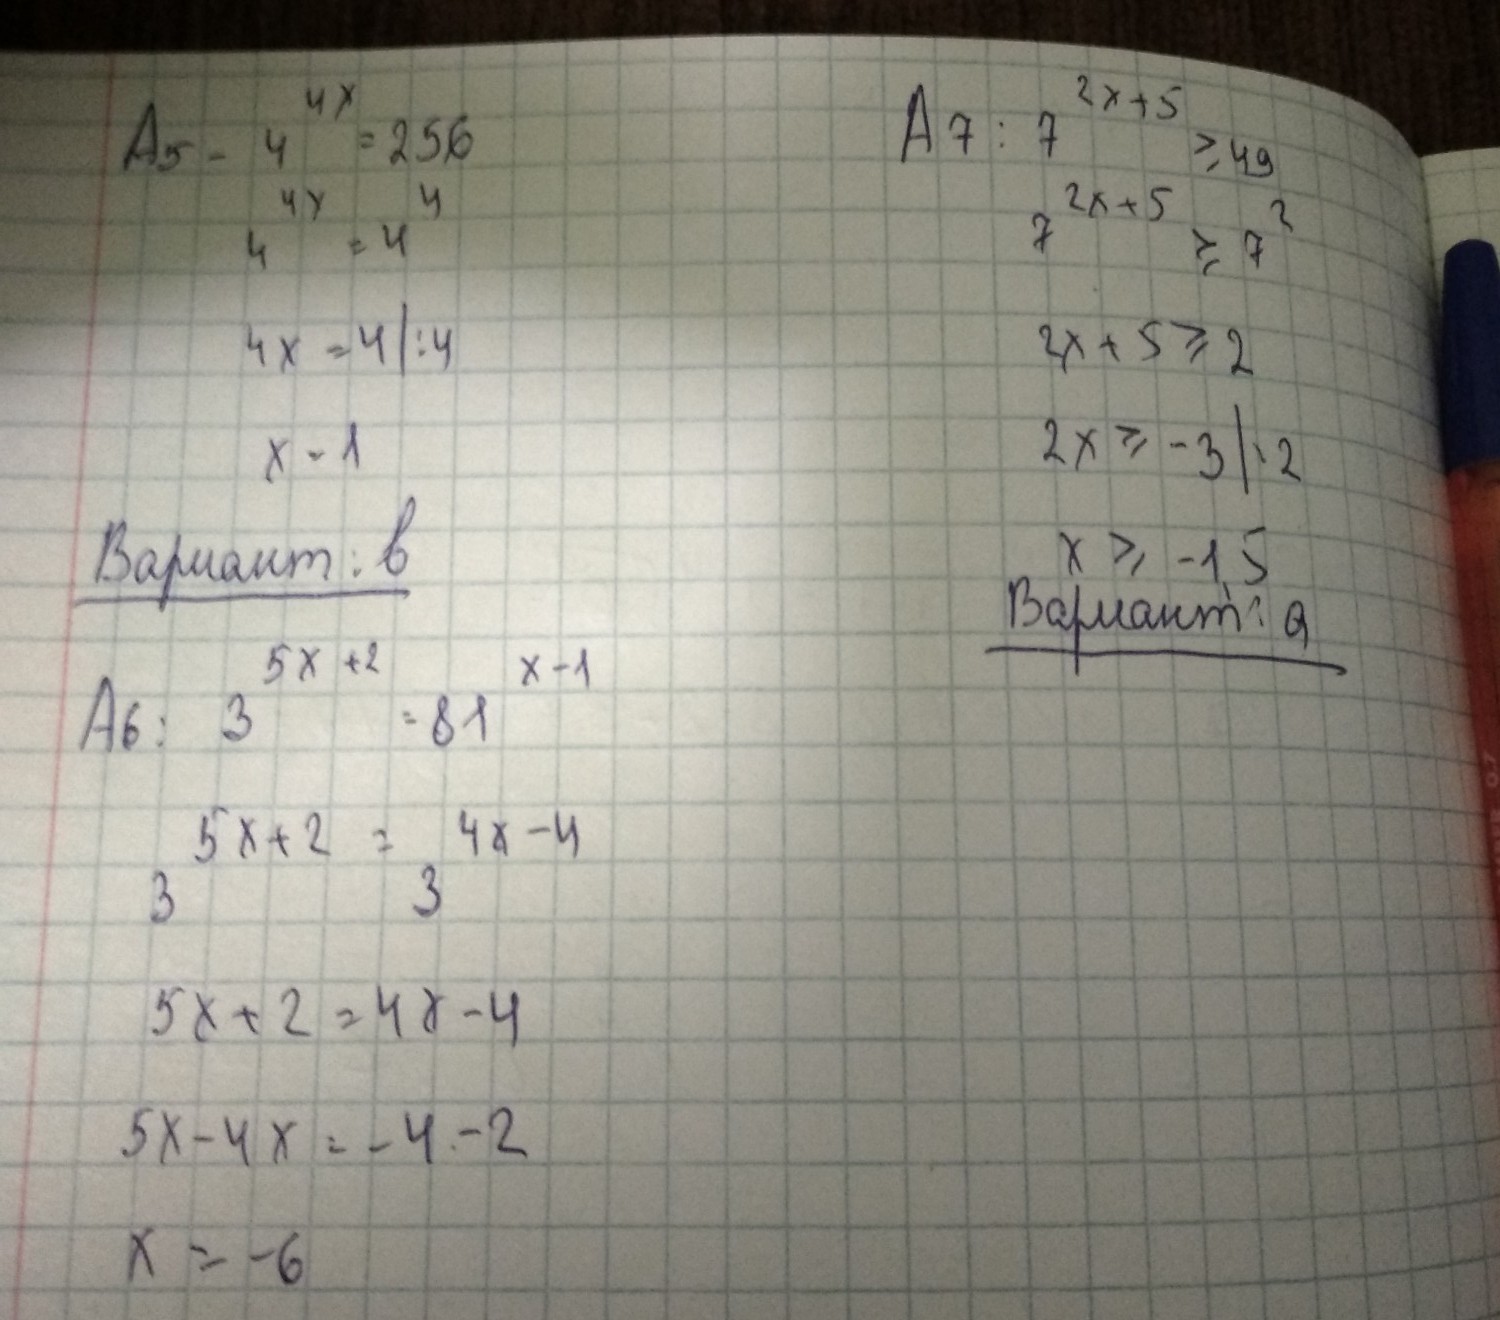 A5 - 4^4x = 256
4^4x = 4^4
4x = 4 | :4
x - 1
Вариант: в
A6: 3^5x+2 = 81^x-1
3^5x+2 = 3^4x-4
5x+2 = 4x-4
5x-4x = -4-2
x = -6
A7: 7^2x+5 ≥ 49
7^2x+5 ≥ 7^2
2x+5 ≥ 2
2x ≥ -3 | :2
x ≥ -1,5
Вариант: а